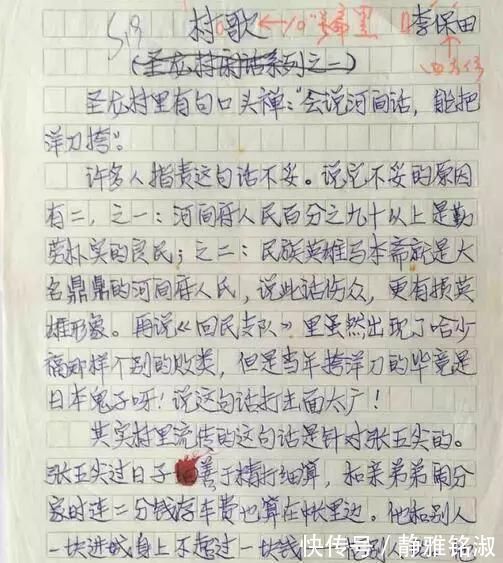 村歌 ←10"号 黑 李保田
(圣龙村闲话系列之一)
圣龙村里有句口头禅:“会说河间话,能把
洋刀挎”。
许多人指责这句话不妥。说它不妥的原因
有二,之一:河间府人民百分之九十以上是勤
劳朴实的良民;之二:民族英雄马本斋就是大
名鼎鼎的河间府人民,说此话伤众,更有损英
雄形象。再说《回民支队》里虽然出现了哈少
福那样个别的败类,但是当年挎洋刀的毕竟是
日本鬼子呀!说这句话打击面太广!
其实村里流传的这句话是针对张五尖的。
张五尖过日子善于精打细算,和亲弟弟闹分
家时连二分钱存车费也算在帐里边。他和别人
一块进城身上不超过一块钱
快传号/静雅铭淑